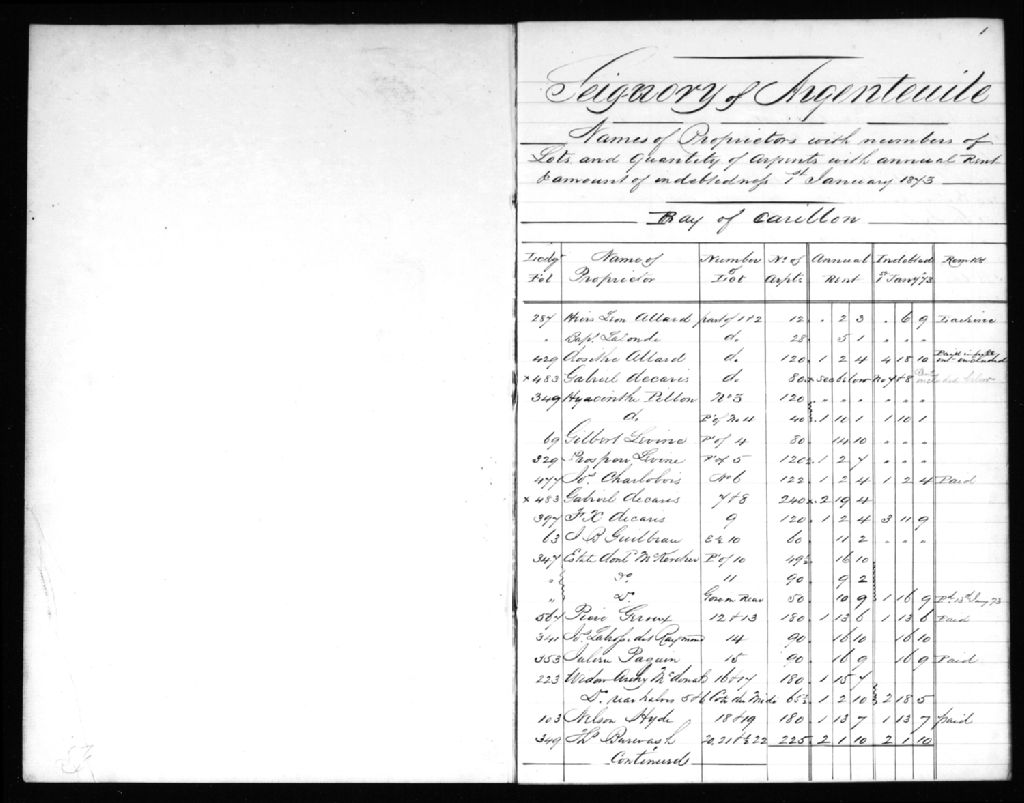 1
Seignory of Argenteuile
Names of Proprietors with numbers of
Lots and Quantity of arpents with annual Rent
& amount of indebtedness 1st January 1873
Bay of Carillon
Ledgr Name of Number No of Annual Indebted Remks
Fol Proprietor of Lot Arpts Rent 1st Jany 73
287 Heirs Leon Allard part of 1 & 2 12 . 2 3 . 6 9 Lachine
" Bapt Lalonde d. 28 . 5 1 . . .
429 Rosethe Allard d. 120 1 2 4 4 18 10 Paid in full
× 483 Gabriel decaris d. 80 see below No 7 & 8 included below
349 Hyacinthe Pillon No 3 120 . . . . . .
d. Pt of No 4 40 1 10 1 1 10 1
69 Gilbert Levine Pt of 4 80 . 14 10 . . .
329 Prosper Levine Pt of 5 120 1 2 7 . . .
477 Js. Charlebois No 6 122 1 2 4 1 2 4 Paid
× 483 Gabriel decaris 7 & 8 240 2 19 4
397 F X decaris 9 120 1 2 4 3 11 9
63 J B Guilbeau E ½ 10 60 . 11 2 . . .
347 Estate Mc Kercher Pt of 10 49 16 10
" Do 11 90 . 9 2
" D. Gore in Rear 50 . 10 9 1 16 9 Pd 13th Jany 73
567 Piere Giroux 12 & 13 180 1 13 6 1 13 6 Paid
341 Raymond 14 90 . 16 10 16 10
353 Julien Paquin 15 90 . 16 9 16 9 Paid
223 Widow Archy McDonald 16 & 17 180 1 15 7
D. rear halves 5 & 6 Cote du Midi 65 1 2 10 2 18 5
103 Nelson Hyde 18 & 19 180 1 13 7 1 13 7 paid
349 Ths Burwash 20, 21 & ½ 22 225 2 1 10 2 1 10
Continued